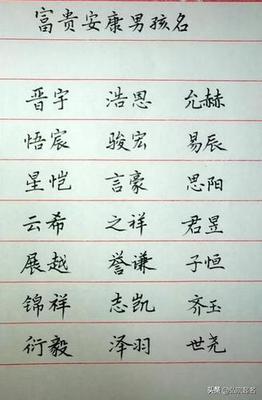 富贵安康男孩名
晋宇 浩恩 允赫
悟宸 骏宏 易辰
星恺 言豪 思阳
云希 之祥 君昱
展越 誉谦 子恒
锦祥 志凯 齐玉
衍毅 泽羽 世尧